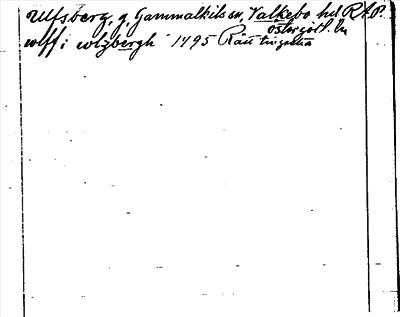 Ulfsberg, g. Gammalkils sn, Valkebo hd RAP.
östergötl. 
wlff i wlzbergh 1495